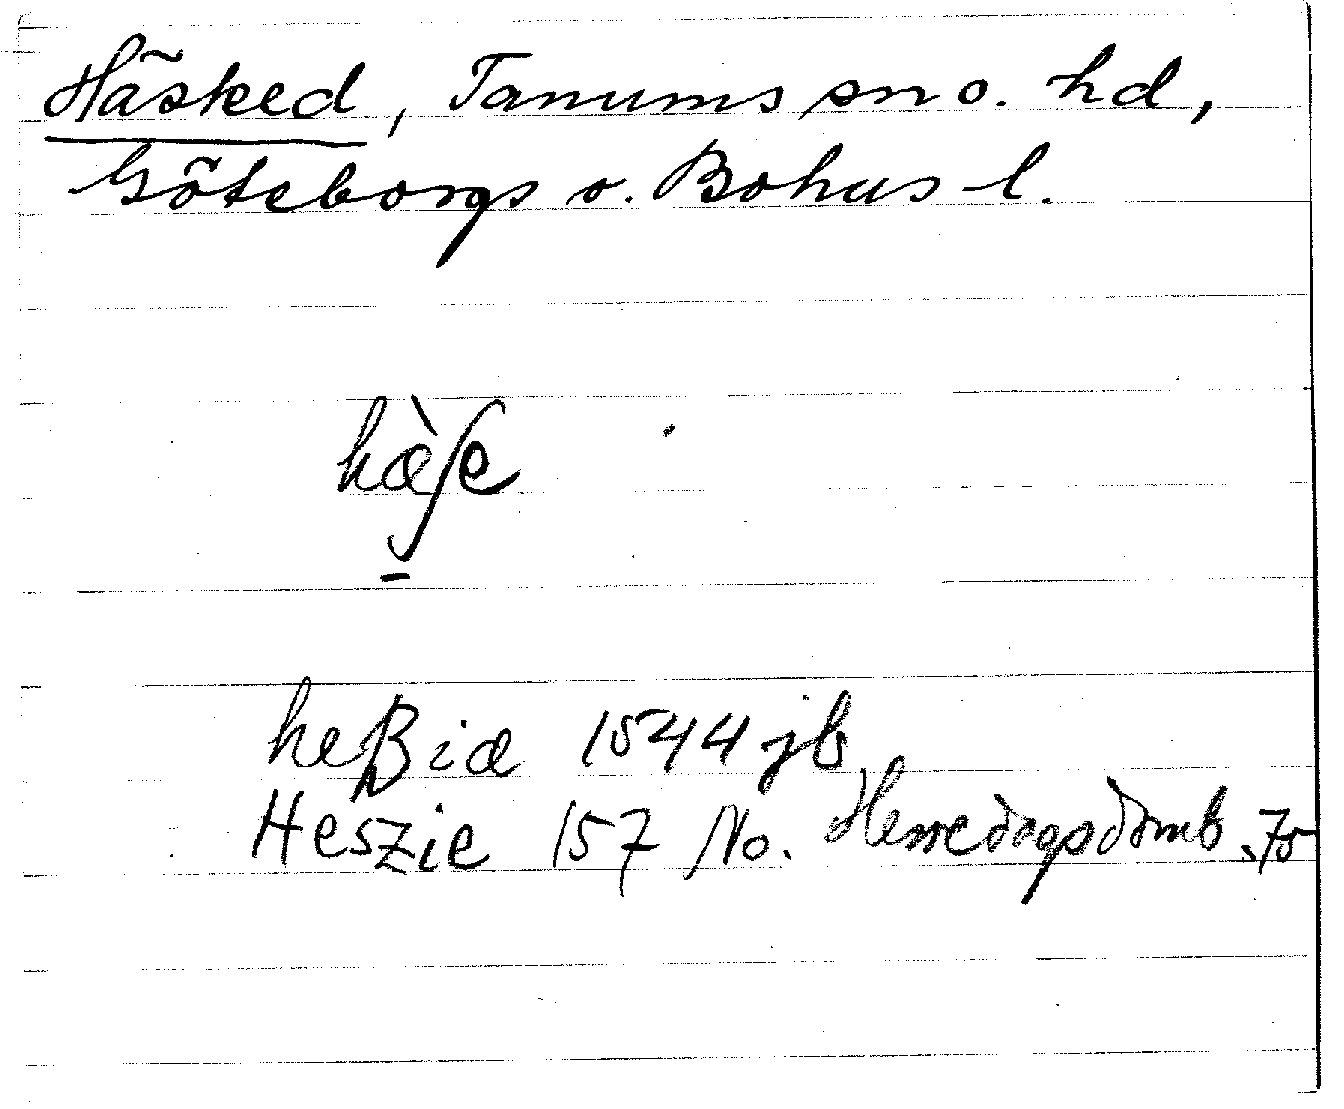 Häsked, Tanums sn o. hd,
Göteborgs o. Bohus l.
hæ̀ʃe
heßiæ 1544 jb
Heszie 1573 No. Herredagsdomb. 75